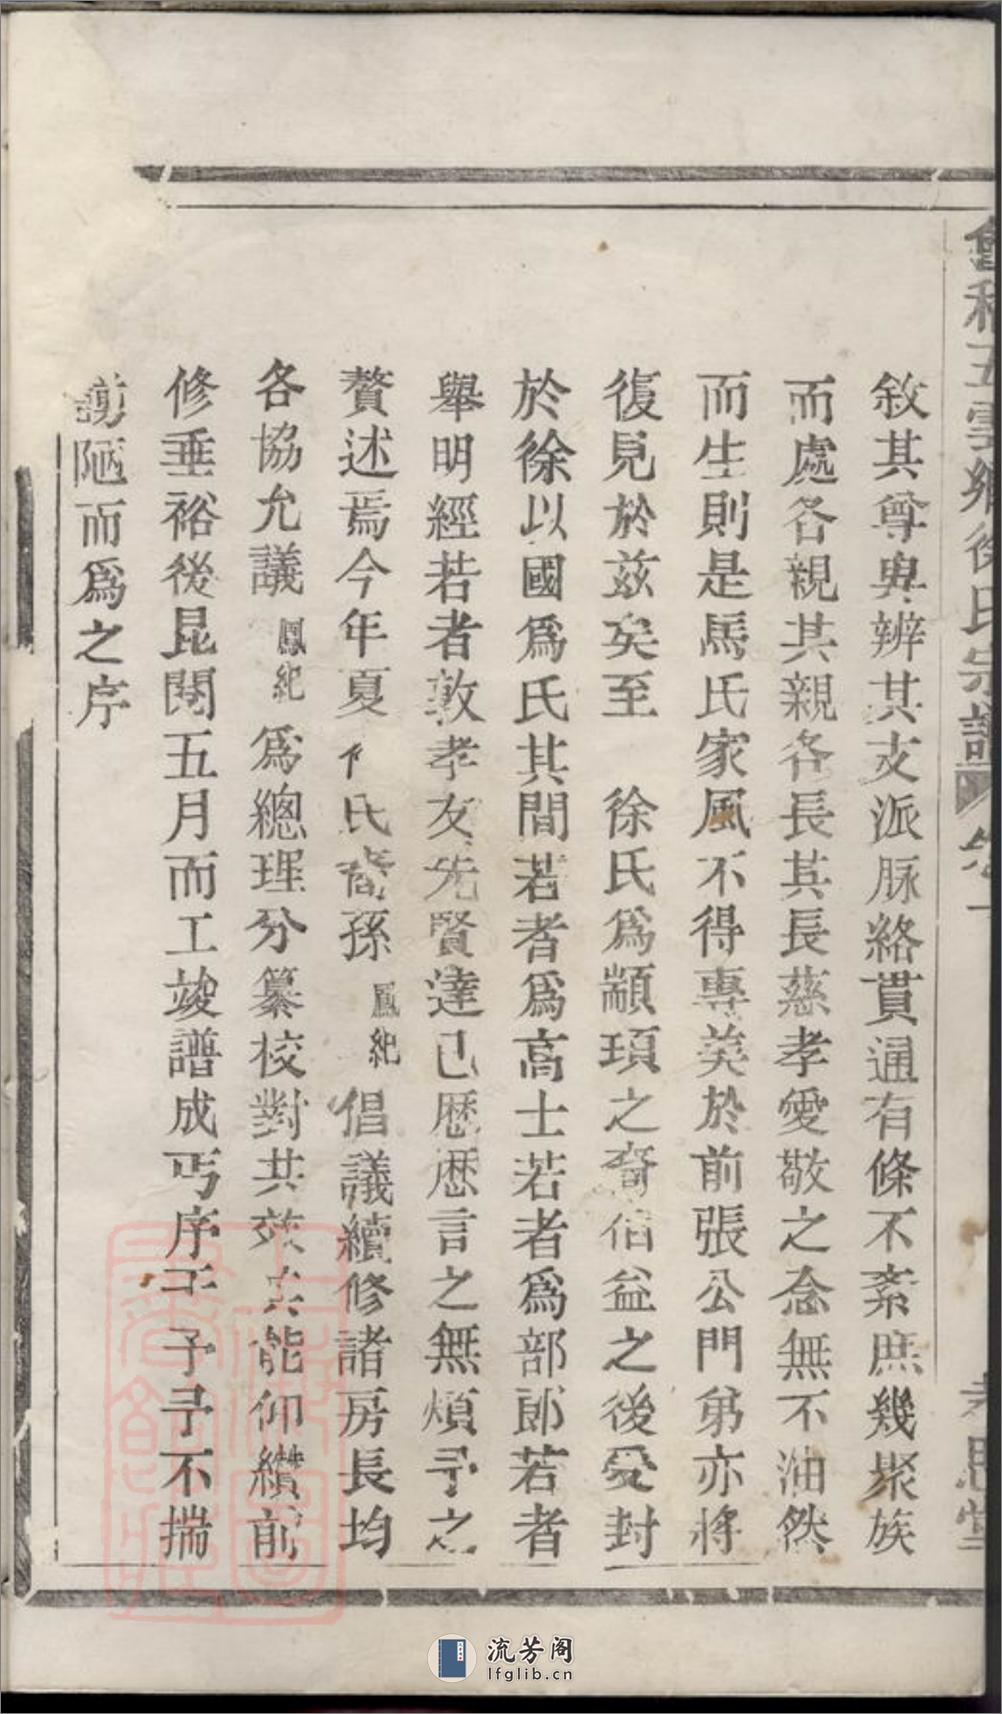 會稽五雲鄉徐氏宗譜 卷一 孝思堂
敘其尊卑辨其支派脉絡貫通有條不紊庶幾聚族
而處各親其親各長其長慈孝愛敬之念無不油然
而生則是馬氏家風不得專美於前張公門第亦將
復見於茲矣至 徐氏為顓頊之裔伯益之後受封
於徐以國為氏其間若者為高士若者為部郎若者
舉明經若者敦孝友先賢達已歷歷言之無煩予之
贅述焉今年夏 氏裔孫 鳳紀 倡議續修諸房長均
各協允議 鳳紀 為總理分纂校對共效 能仰纘前
修垂裕後昆閱五月而工竣譜成丐序于予予不揣
謭陋而為之序
上海圖書館藏
流芳阁
lfglib.cn